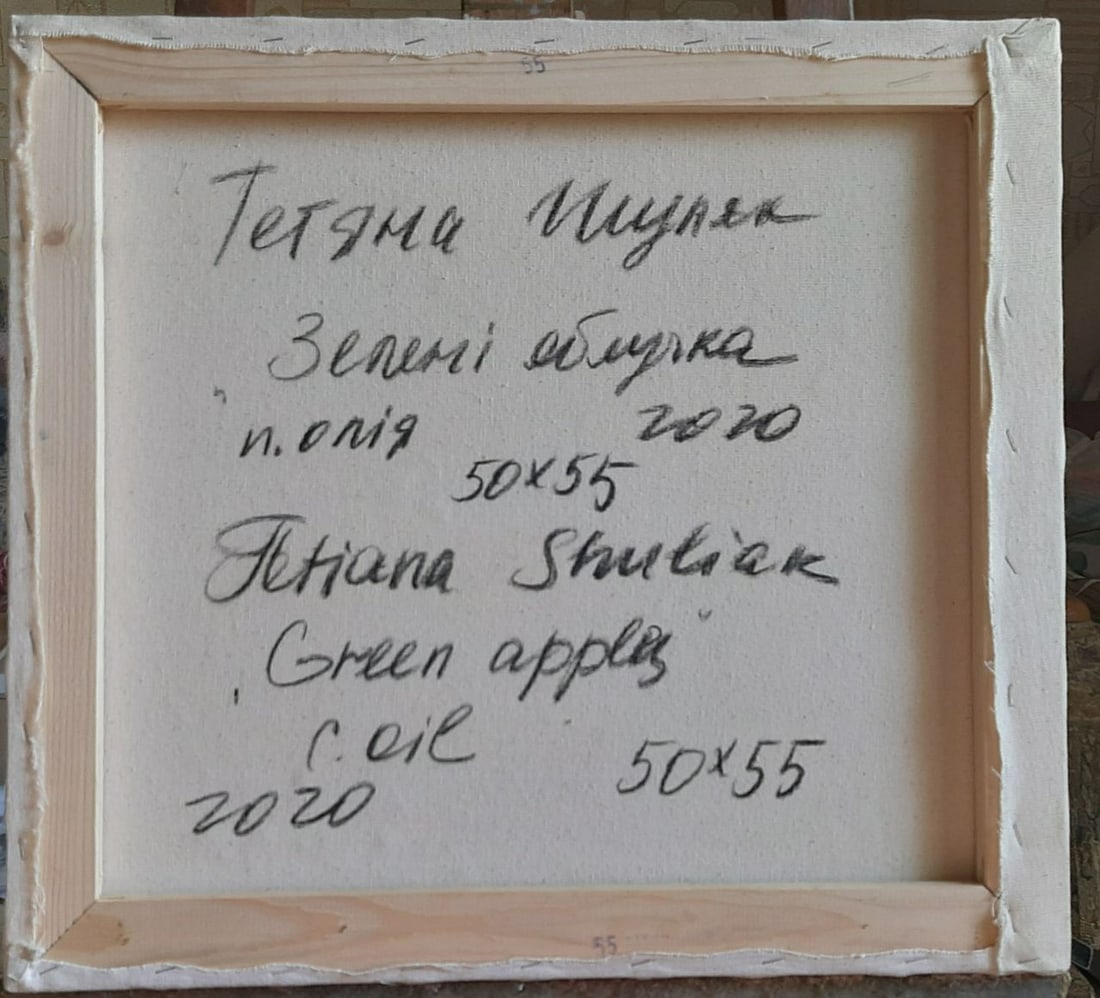 55
Тетяна Шуляк
„Зелені яблучка
п.олія 2020
50x55
Tetiana Shuliak
„Green apples"
c.oil 50x55
2020
55